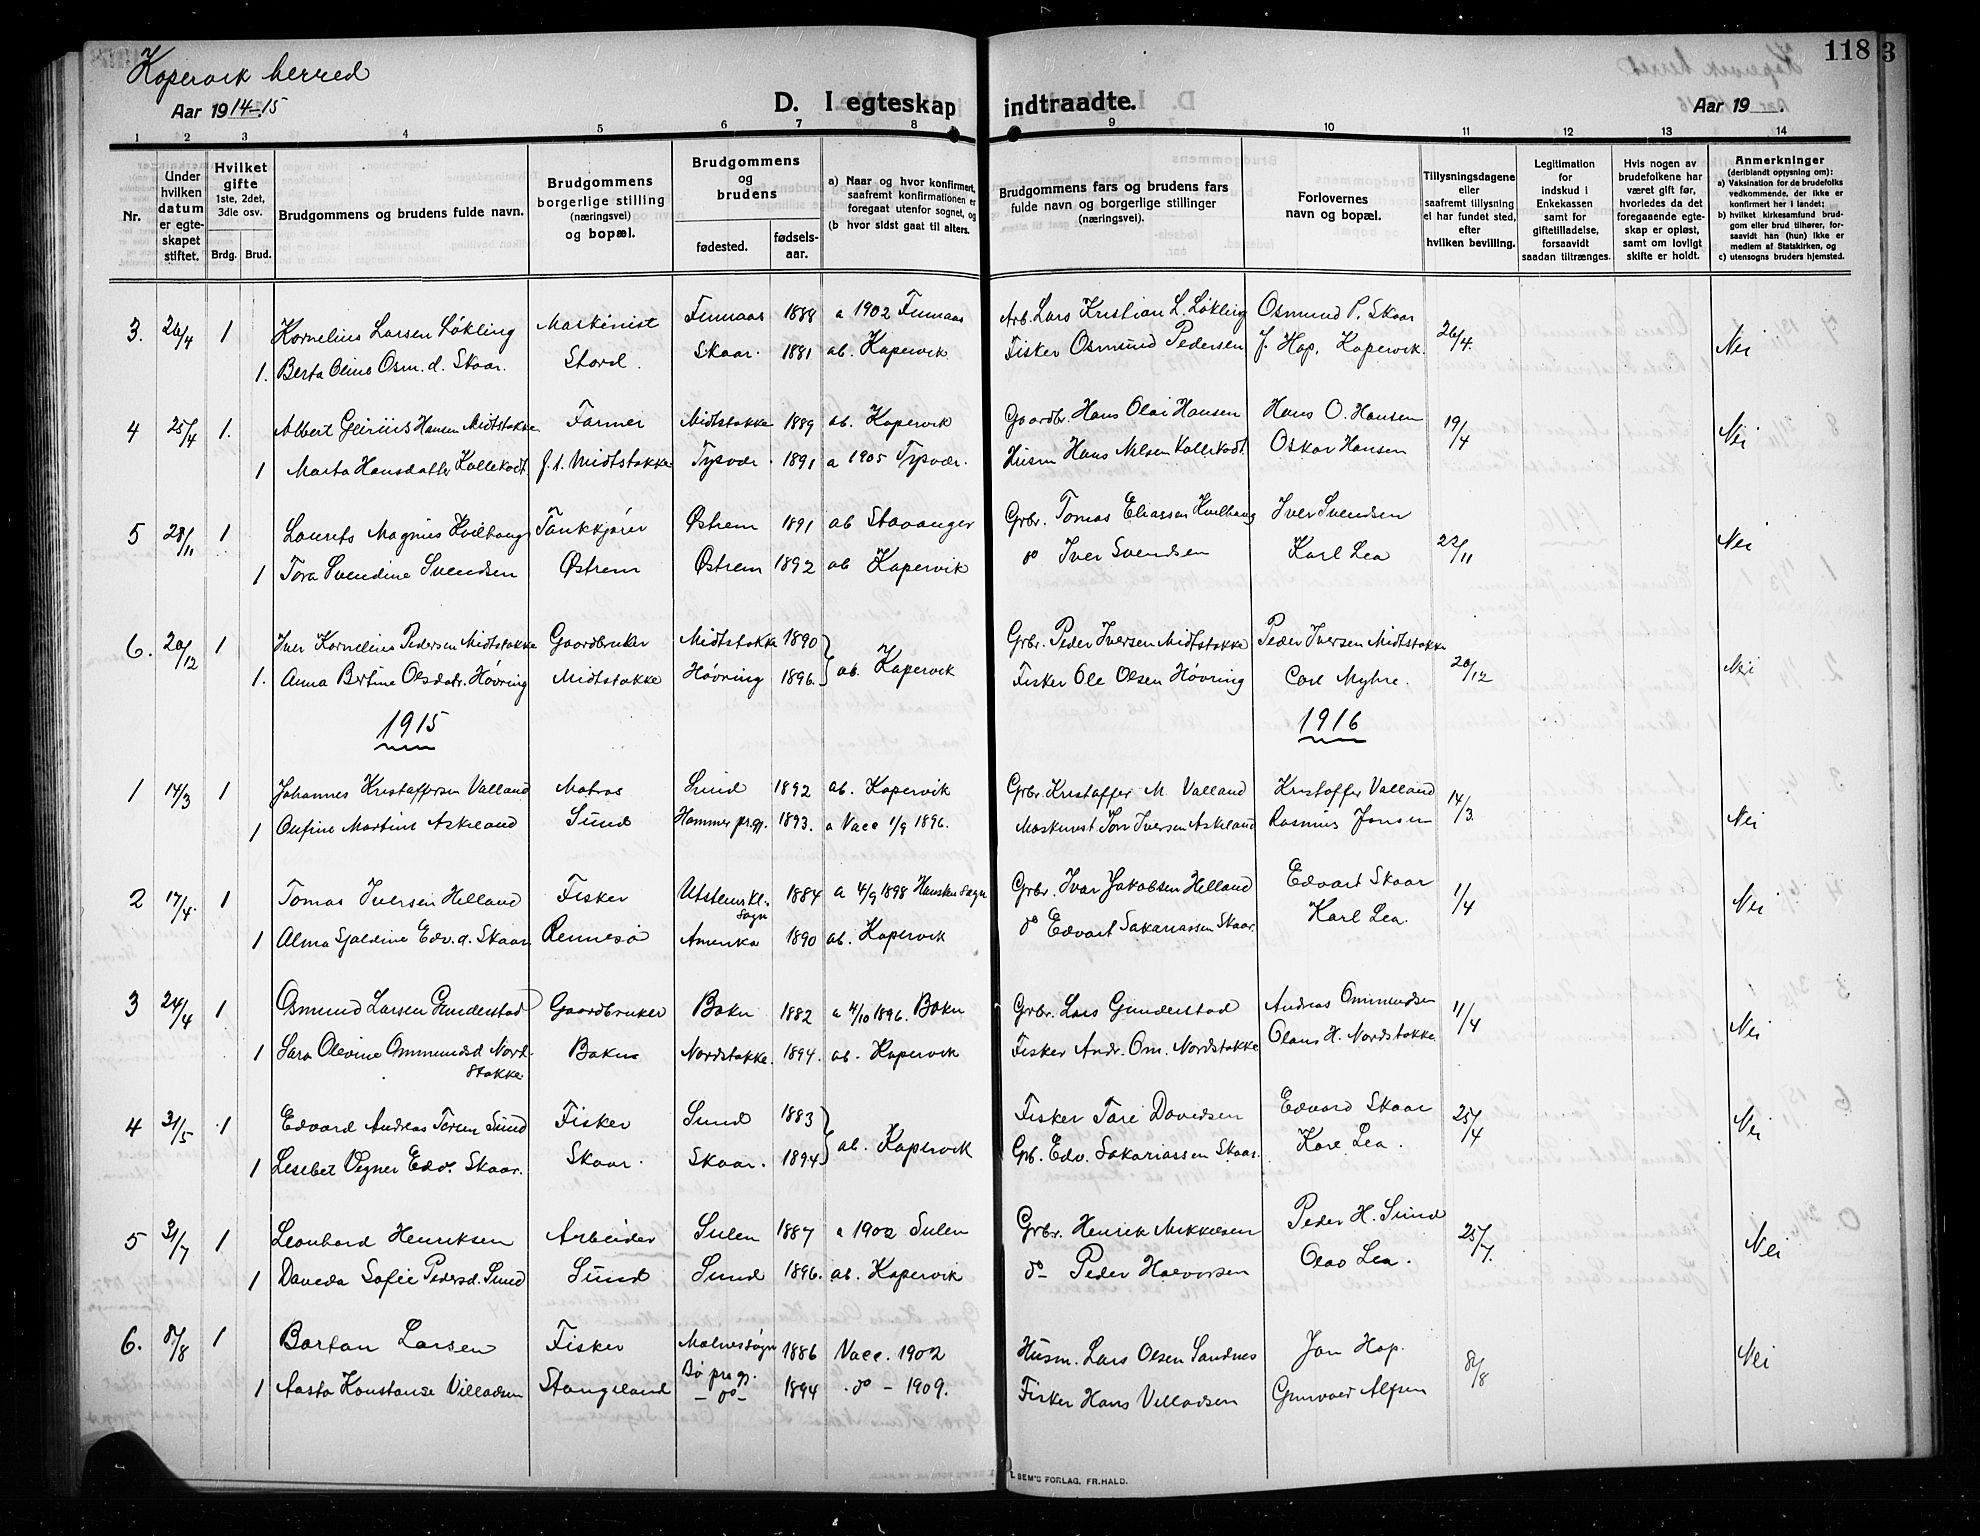 Kopervik herred
Aar 1914-15
D. I egteskap indtraadte.
Aar 19
118
3
1 2 3 4 5 6 7 8 9 10 11 12 13 14
Nr.
Under hvilken datum er egteskapet stiftet.
Hvilket gifte 1ste, 2det, 3die osv.
Brdg. Brud.
Brudgommens og brudens fulde navn.
Brudgommens borgerlige stilling (næringsvei) og bopæl.
Brudgommens og brudens
fødested. fødselsaar.
a) Naar og hvor konfirmert, saafremt konfirmationen er foregaat utenfor sognet, og
(b hvor sidst gaat til alters.
Brudgommens fars og brudens fars fulde navn og borgerlige stillinger (næringsvei).
Forlovernes navn og bopæl.
Tillysningsdagene eller saafremt tillysning ei har fundet sted, efter hvilken bevilling.
Legitimation for indskud i Enkekassen samt for giftetilladelse, forsaavidt saadan tiltrænges.
Hvis nogen av brudefolkene har været gift før, hvorledes da det foregaaende egteskap er opløst, samt om lovligt skifte er holdt.
Anmerkninger (deriblandt oplysning om):
a) Vaksination for de brudefolks vedkommende, der ikke er konfirmert her i landet;
b) hvilket kirkesamfund brudgom eller brud tilhører, forsaavidt han (hun) ikke er medlem af Statskirken, og
c) utensogns bruders hjemsted.
3. 26/4 1 Kornelius Larsen Løkling Maskinist Finnaas 1888 a 1902 Finnaas Arb. Lars Kristian L. Løkling Osmund P. Skaar 26/4. Nei
1. Berta Oline Osm. d. Skaar. Stord. Skaar. 1881 ab. Kopervik Fisker Osmund Pedersen J. Hop, Kopervik.
4 25/4 1. Albert Hansen Midtstokke Farmer Midtstokke 1889 ab. Kopervik Gaardbr. Hans Olai Hansen Hans O. Hansen 19/4 Nei
1 Marta Hansdatter Kallekodt. f. t. Midtstokke Tysvær. 1891 a 1905 Tysvær. Husm Hans Nilsen Kallekodt. Oskar Hansen
5 28/11 1 Laurits Magnus Kvilhaug Tankkjører Østrem 1891 ab Stavanger Grbr. Tomas Eliassen Kvilhaug Iver Svendsen 22/11 Nei
1 Tora Svendine Svendsen Østrem Østrem 1892 ab Kopervik do Iver Svendsen Karl Lea
6. 20/12 1 Iver Kornelius Pedersen Midtstokke Gaardbruker Midtstokke 1890 ab. Kopervik Grbr. Peder Iversen Midtstokke Peder Iversen Midtstokke 20/12 Nei
1. Anna Bertine Olsdatr. Høvring Midtstokke Høvring 1896. Fisker Ole Olsen Høvring Carl Myhre.
1915
1916
1 14/3 1 Johannes Kristoffersen Valland Matros Sund 1892 ab. Kopervik Grbr. Kristoffer M. Valland Kristoffer Valland 14/3. Nei
1 Martine Askeland Sund Hammer pr.gj. 1893. a Vacc 1/9 1896. Maskinist Iversen Askeland Rasmus Jonsen
2 17/4. 1 Tomas Iversen Helland Fisker Utstein Kl. Sogn 1884 a 4/9 1898 Sogn Grbr. Ivar Jakobsen Helland Edvart Skaar 1/4 Nei
1 Alma Sjaldine Edv. d. Skaar Rennesø Amerika 1890 ab. Kopervik do Edvart Sakariassen Skaar. Karl Lea.
3 24/4 1 Osmund Larsen Gunderstad Gaardbruker Bokn 1882 a 4/10 1896. Bokn Grbr. Lars Gunderstad Andreas Ommundsen 11/4 Nei
1 Sara Olevine Ommundsd Nordstokke Bokn Nordstokke. 1894. ab. Kopervik Fisker Andr. Om. Nordstokke Olaus H. Nordstokke
4 31/5 1 Edvard Andreas Toresen Sund Fisker Sund 1883 ab. Kopervik Fisker Tore Davidsen Edvard Skaar 25/4 Nei
1 Lisebet Vegner Edv. Skaar. Skaar. Skaar. 1894 Grb. Edv. Sakariassen Skaar. Karl Lea.
5 31/7 1 Leonhard Henriksen Arbeider Sulen 1887 a 1902 Sulen Grbr. Henrik Mikkelsen Peder H. Sund 25/7. Nei
1 Daveda Sofie Pedersd. Sund Sund Sund 1896. ab. Kopervik do- Peder Halvorsen Olav Lea.
6. 8/8 1 Bartan Larsen Fisker Malnes sogn Bø prgj. 1886 Vacc. 1902 Husm. Lars Olsen Sandnes Jon Hop. 8/8 Nei
1 Aasta Konstanse Villadsen Stangeland - do - 1894 do - 1909. Fisker Hans Villadsen Gunvald Alfsen
SEM'S FORLAG, FR.HALD.